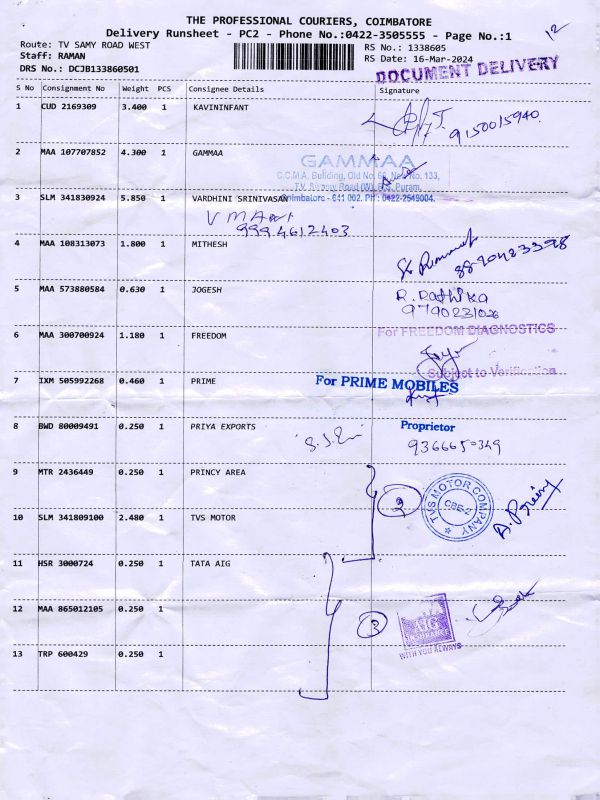 THE PROFESSIONAL COURIERS, COIMBATORE
Delivery Runsheet - PC2 - Phone No.:0422-3505555 - Page No.:1
12
Route: TV SAMY ROAD WEST
RS No.: 1338605
Staff: RAMAN
RS Date: 16-Mar-2024
DRS No.: DCJB133860501
DOCUMENT DELIVERY
S No Consignment No Weight PCS Consignee Details Signature
1 CUD 2169309 3.400 1 KAVININFANT
9150015940
2 MAA 107707852 4.300 1 GAMMAA
GAMMAA
C.C.M.A. Building, Old No. 66, New No. 133,
T.V. Samy Road (W), R.S. Puram,
Coimbatore - 641 002. PH : 0422-2549004.
3 SLM 341830924 5.850 1 VARDHINI SRINIVASAN
9994612403
4 MAA 108313073 1.800 1 MITHESH
5 MAA 573880584 0.630 1 JOGESH
R. Rathika
9790231026
6 MAA 300700924 1.180 1 FREEDOM
For FREEDOM DIAGNOSTICS
Subject to Verification
7 IXM 505992268 0.460 1 PRIME
For PRIME MOBILES
Proprietor
8 BWD 80009491 0.250 1 PRIYA EXPORTS
9366650349
9 MTR 2436449 0.250 1 PRINCY AREA
10 SLM 341809100 2.480 1 TVS MOTOR
TVS MOTOR COMPANY
CBE-2
11 HSR 3000724 0.250 1 TATA AIG
12 MAA 865012105 0.250 1
3
AIG
INSURANCE
WITH YOU ALWAYS
13 TRP 600429 0.250 1